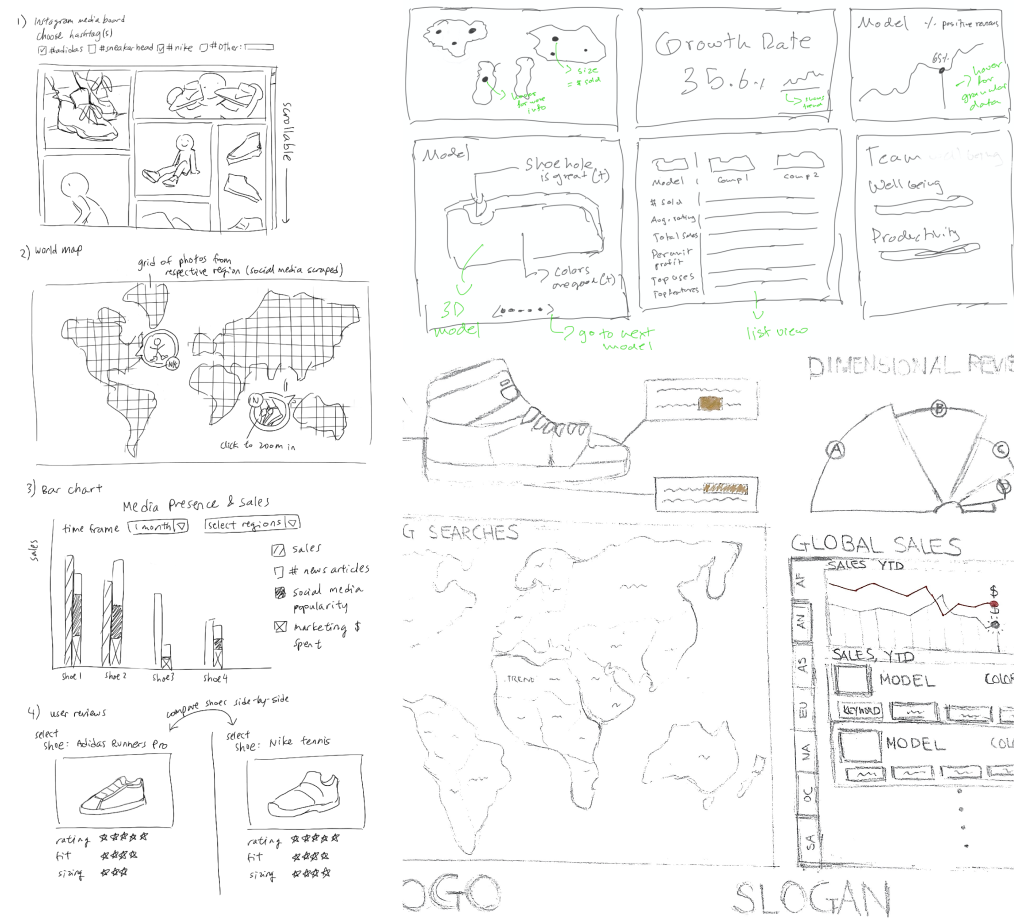 1) Instagram media board
choose hashtag(s)
#adidas #sneakerhead #nike #other:
scrollable
2) World map
grid of photos from
respective region (social media scraped)
NA
N
click to zoom in
3) Bar chart
Media Presence & Sales
time frame 1 month select regions
sales
sales
# news articles
social media
popularity
marketing $
spent
Shoe 1 Shoe 2 Shoe 3 Shoe 4
4) user reviews
compare shoes side-by-side
select
shoe: Adidas Runners Pro
rating
fit
sizing
select
shoe: Nike tennis
rating
fit
sizing
size
= # sold
hover
for more
info
Growth Rate
35.6%
Model % positive reviews
65%
hover
for
granular
data
Model
Shoe hole
is great (+)
colors
are good (+)
3D
model
go to next
model
Model Comp 1 Comp 2
# sold
Avg. rating
Total Sales
Per unit
profit
Top Uses
Top features
list view
Team well being
Well being
Productivity
DIMENSIONAL REVIE
A
B
C
D
G SEARCHES
TREND
GLOBAL SALES
SALES YTD
AF
AN
AS
EU
NA
OC
SA
SALES, YTD
MODEL COLOR
KEYWORD
MODEL COL
OGO
SLOGAN